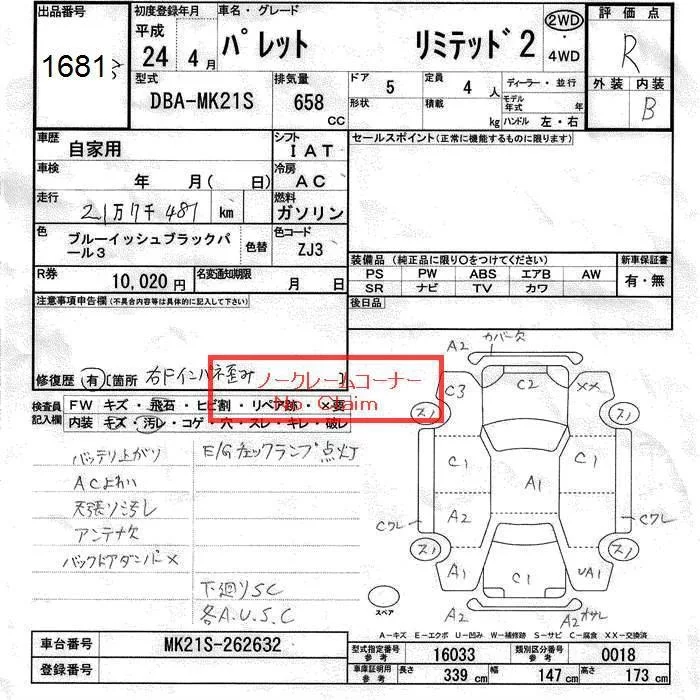 出品番号
初度登録年月
車名・グレード
評価点
1681
平成
24年 4月
パレット リミテッド2
2WD
・
4WD
R
型式
DBA-MK21S
排気量
658
cc
ドア
5
定員
4 人
形状
積載
kg
ディーラー・並行
モデル年式 年
ハンドル 左・右
外装
内装
B
車歴
自家用
シフト
IAT
セールスポイント(正常に機能するものに限ります)
車検
年 月( 日)
冷房
AC
走行
21万7千487
km
燃料
ガソリン
色
ブルーイッシュブラックパール3
色替
色コード
ZJ3
装備品(純正品に限り○をつけてください)
新車保証書
PS PW ABS エアB AW
SR ナビ TV カワ
有・無
R券
10,020 円
名変通知期限
月 日
後日品
注意事項申告欄(不具合内容等は具体的に記入して下さい)
修復歴 有 [箇所 右Fインパネ歪み ]
ノークレームコーナー
No Claim
検査員記入欄
FW キズ・飛石・ヒビ割・リペア跡・×要
内装 キズ・汚レ・コゲ・穴・スレ・キレ・破レ
バッテリ上がり
E/Gチェックランプ点灯
ACよわい
天張り汚レ
アンテナ欠
バックドアダンパー×
下廻りSC
各A.U.S.C
A2
カバー欠
C3
C2
××
スノ
スノ
C1
A1
C1
A2
Cワレ
Cワレ
スノ
スノ
A1
C1
UA1
スペア
A2
A2
A-キズ E-エクボ U-凹み W-補修跡 S-サビ C-腐食 XX-交換済
車台番号
MK21S-262632
登録番号
型式指定番号
参考
16033
類別区分番号
参考
0018
車庫証明用
参考
長さ
339 cm
幅
147 cm
高さ
173 cm